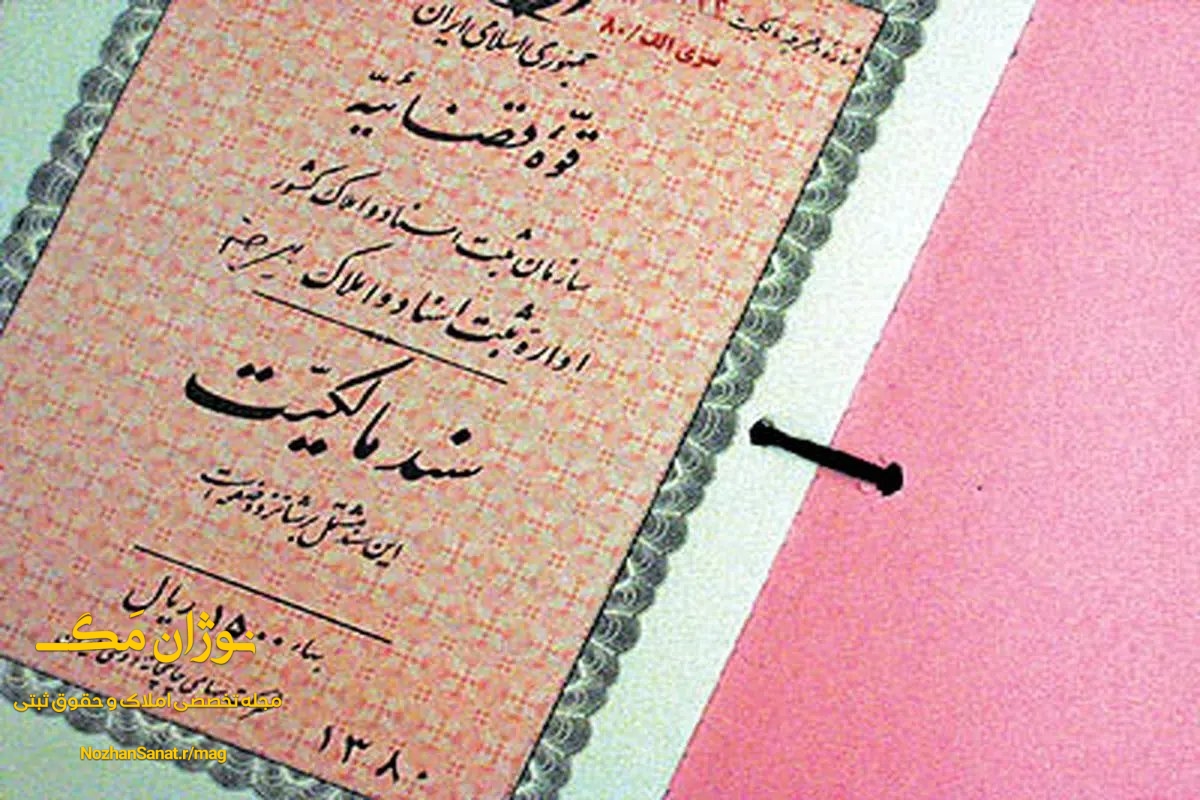 شماره دفترچه مالکیت
سری الف/۸۰
جمهوری اسلامی ایران
قوّهٔ قضائیّه
سازمان ثبت اسناد و املاک کشور
ادارهٔ ثبت اسناد و املاک بیرجند
سند مالکیّت
این سند مشتمل بر شانزده صفحه است
بهاء ۱۵۰۰ ریال
۱۳۸۰
نوژان مَگ
مجله تخصصی املاک و حقوق ثبتی
NozhanSanat.r/mag